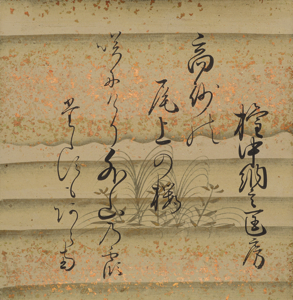 権中納言匡房
高砂の
尾上の桜
咲にけり外山乃霞
たゝすもあら南